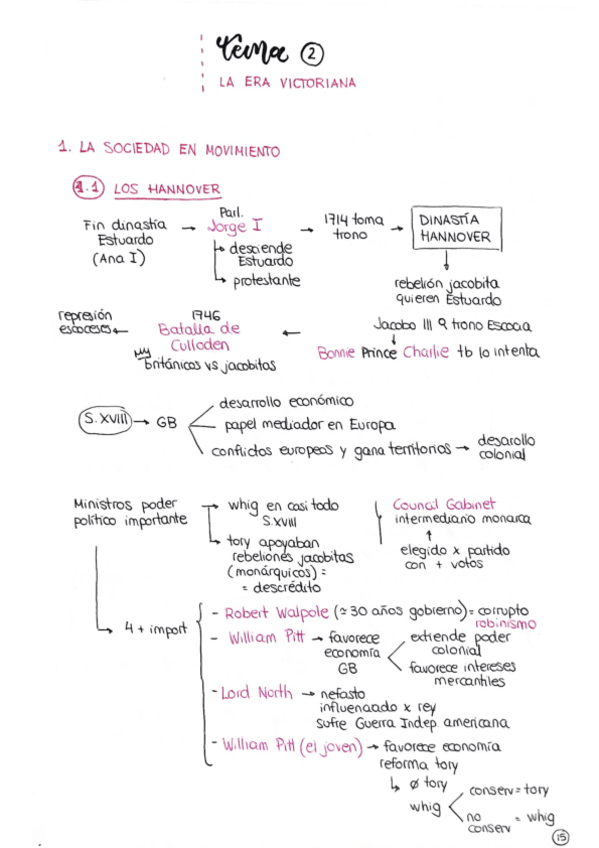 Tema ②
LA ERA VICTORIANA
1. LA SOCIEDAD EN MOVIMIENTO
1.1 LOS HANNOVER
Fin dinastía Estuardo (Ana I) → Parl. Jorge I → 1714 toma trono → DINASTÍA HANNOVER
↳ desciende Estuardo
↳ protestante
↓
rebelión jacobita
quieren Estuardo
Jacobo III trono Escocia
↓
Bonnie Prince Charlie tb lo intenta
←
1746
Batalla de
Culloden
británicos vs jacobitas
represión
escoceses ←
S.XVIII → GB
desarrollo económico
papel mediador en Europa
conflictos europeos y gana territorios → desarollo colonial
Ministros poder
político importante
→ whig en casi todo
S.XVIII
↳ tory apoyaban
rebeliones jacobitas
(monárquicos) =
= descrédito
Council Gabinet
intermediario monarca
↑
elegido x partido
con + votos
↳ 4 + import
- Robert Walpole (≃ 30 años gobierno) = corrupto
robinismo
- William Pitt → favorece
economía
GB
extiende poder
colonial
favorece intereses
mercantiles
- Lord North → nefasto
influenciado x rey
sufre Guerra Indep. americana
- William Pitt (el joven) → favorece economía
reforma tory
↳ ø tory
whig
conserv = tory
no conserv = whig
15